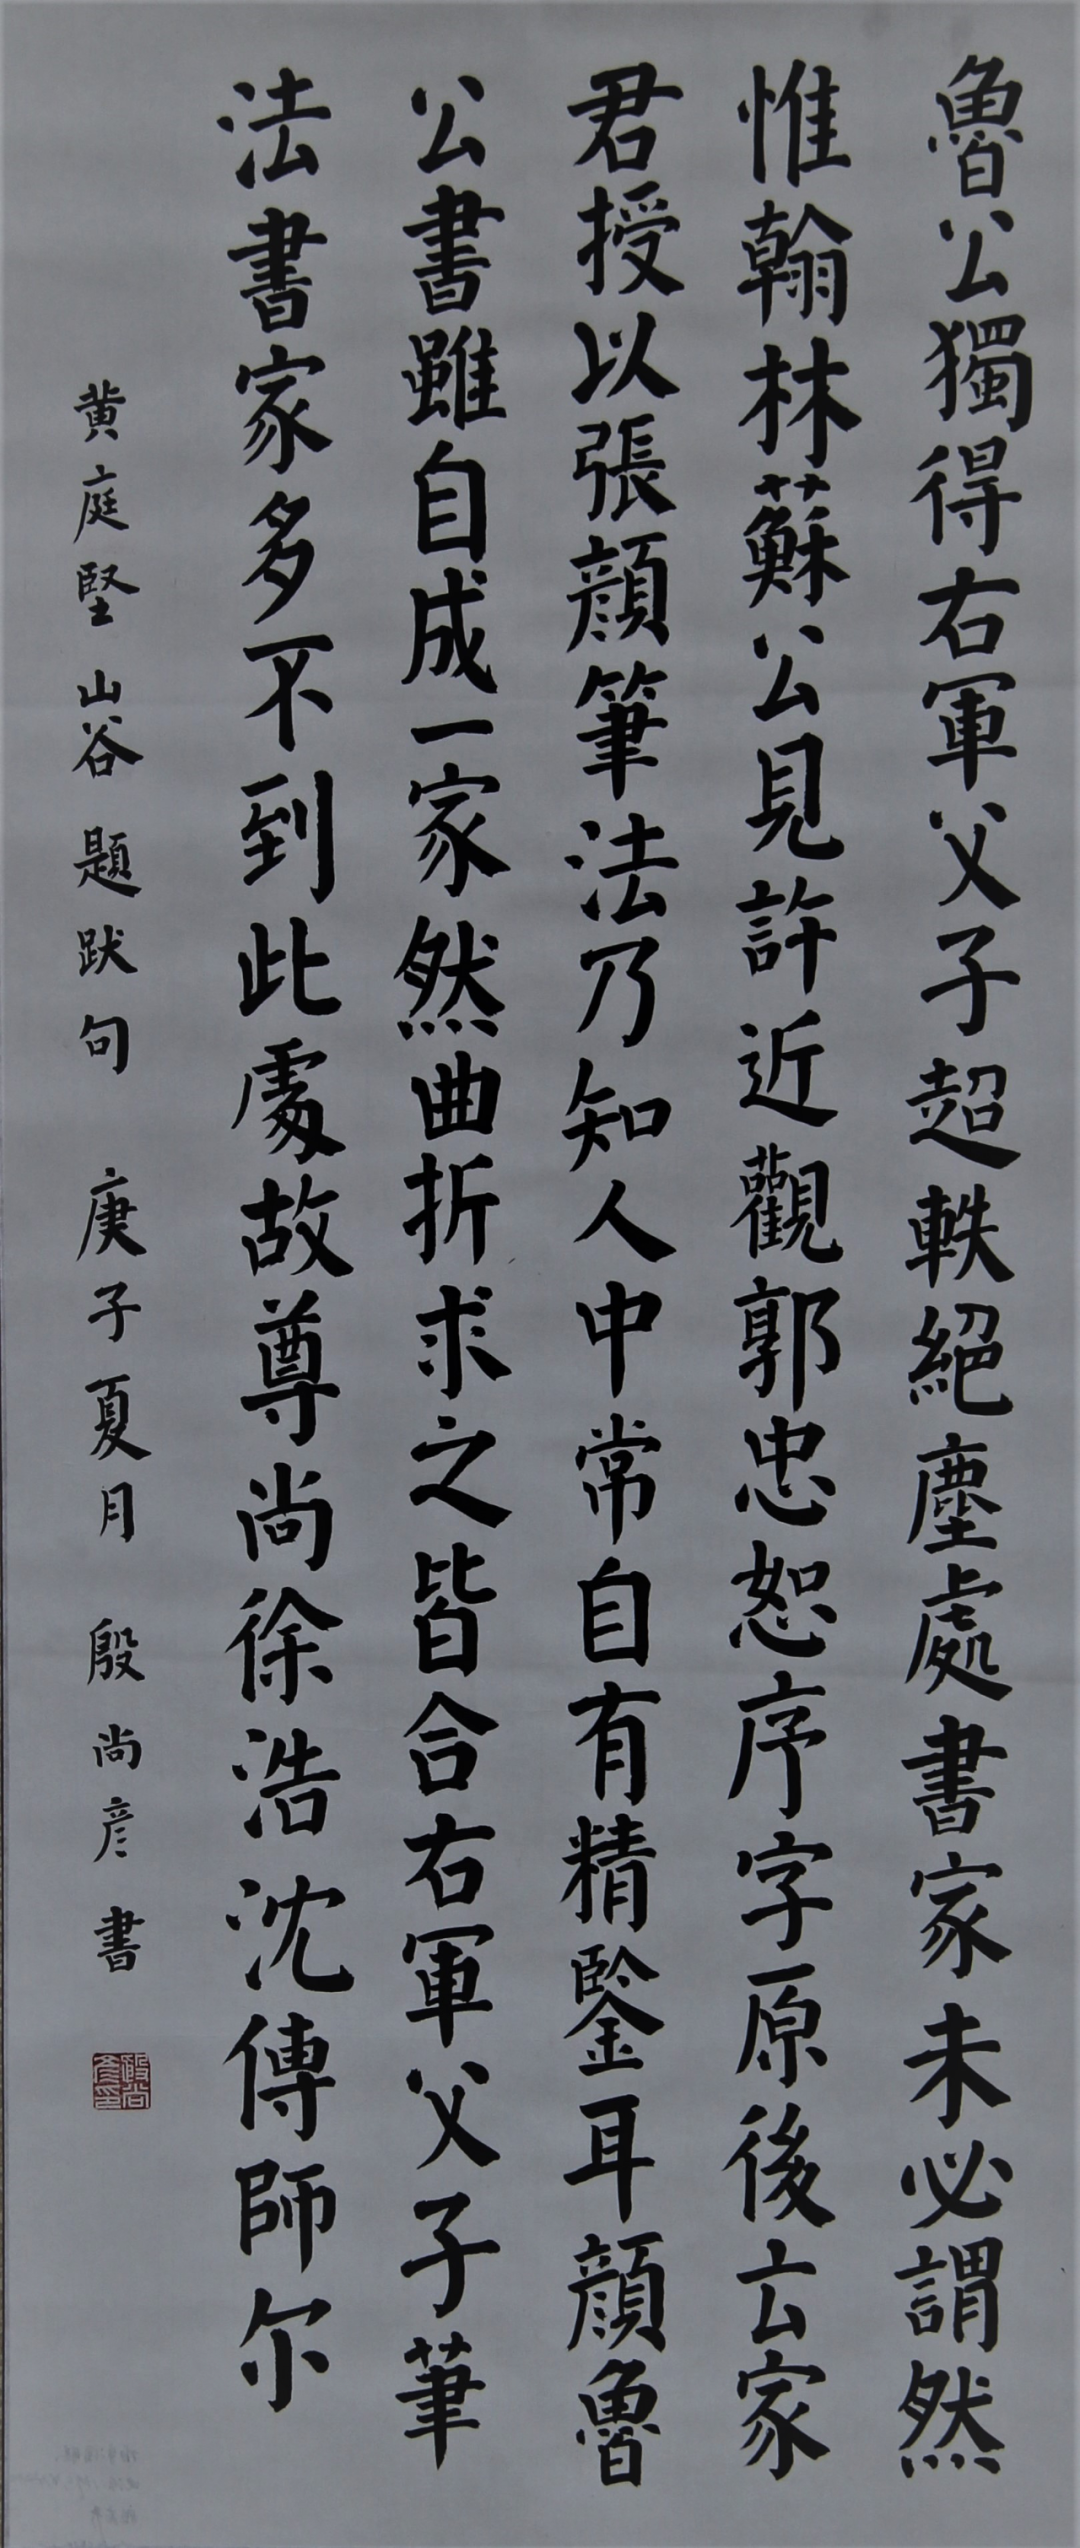 魯公獨得右軍父子超軼絕塵處書家未必謂然
惟翰林蘇公見許近觀郭忠恕序字原後云家
君授以張顏筆法乃知人中常自有精鑒耳顏魯
公書雖自成一家然曲折求之皆合右軍父子筆
法書家多不到此處故尊尚徐浩沈傳師尔
黃庭堅 山谷 題跋句 庚子夏月 殷尚彥書
殷尚彥印